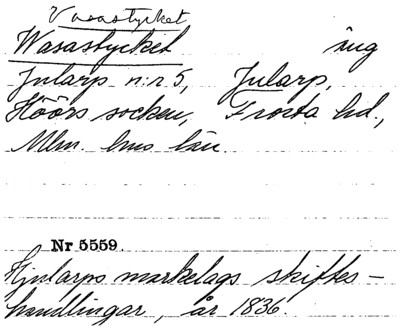 Vasastycket
Wasastycket äng
Jularp n:r 5, Jularp,
Höörs socken, Frosta hd.,
Mlm. hus län.
Nr 5559.
Hjularps markelags skiftes-
handlingar, år 1836.